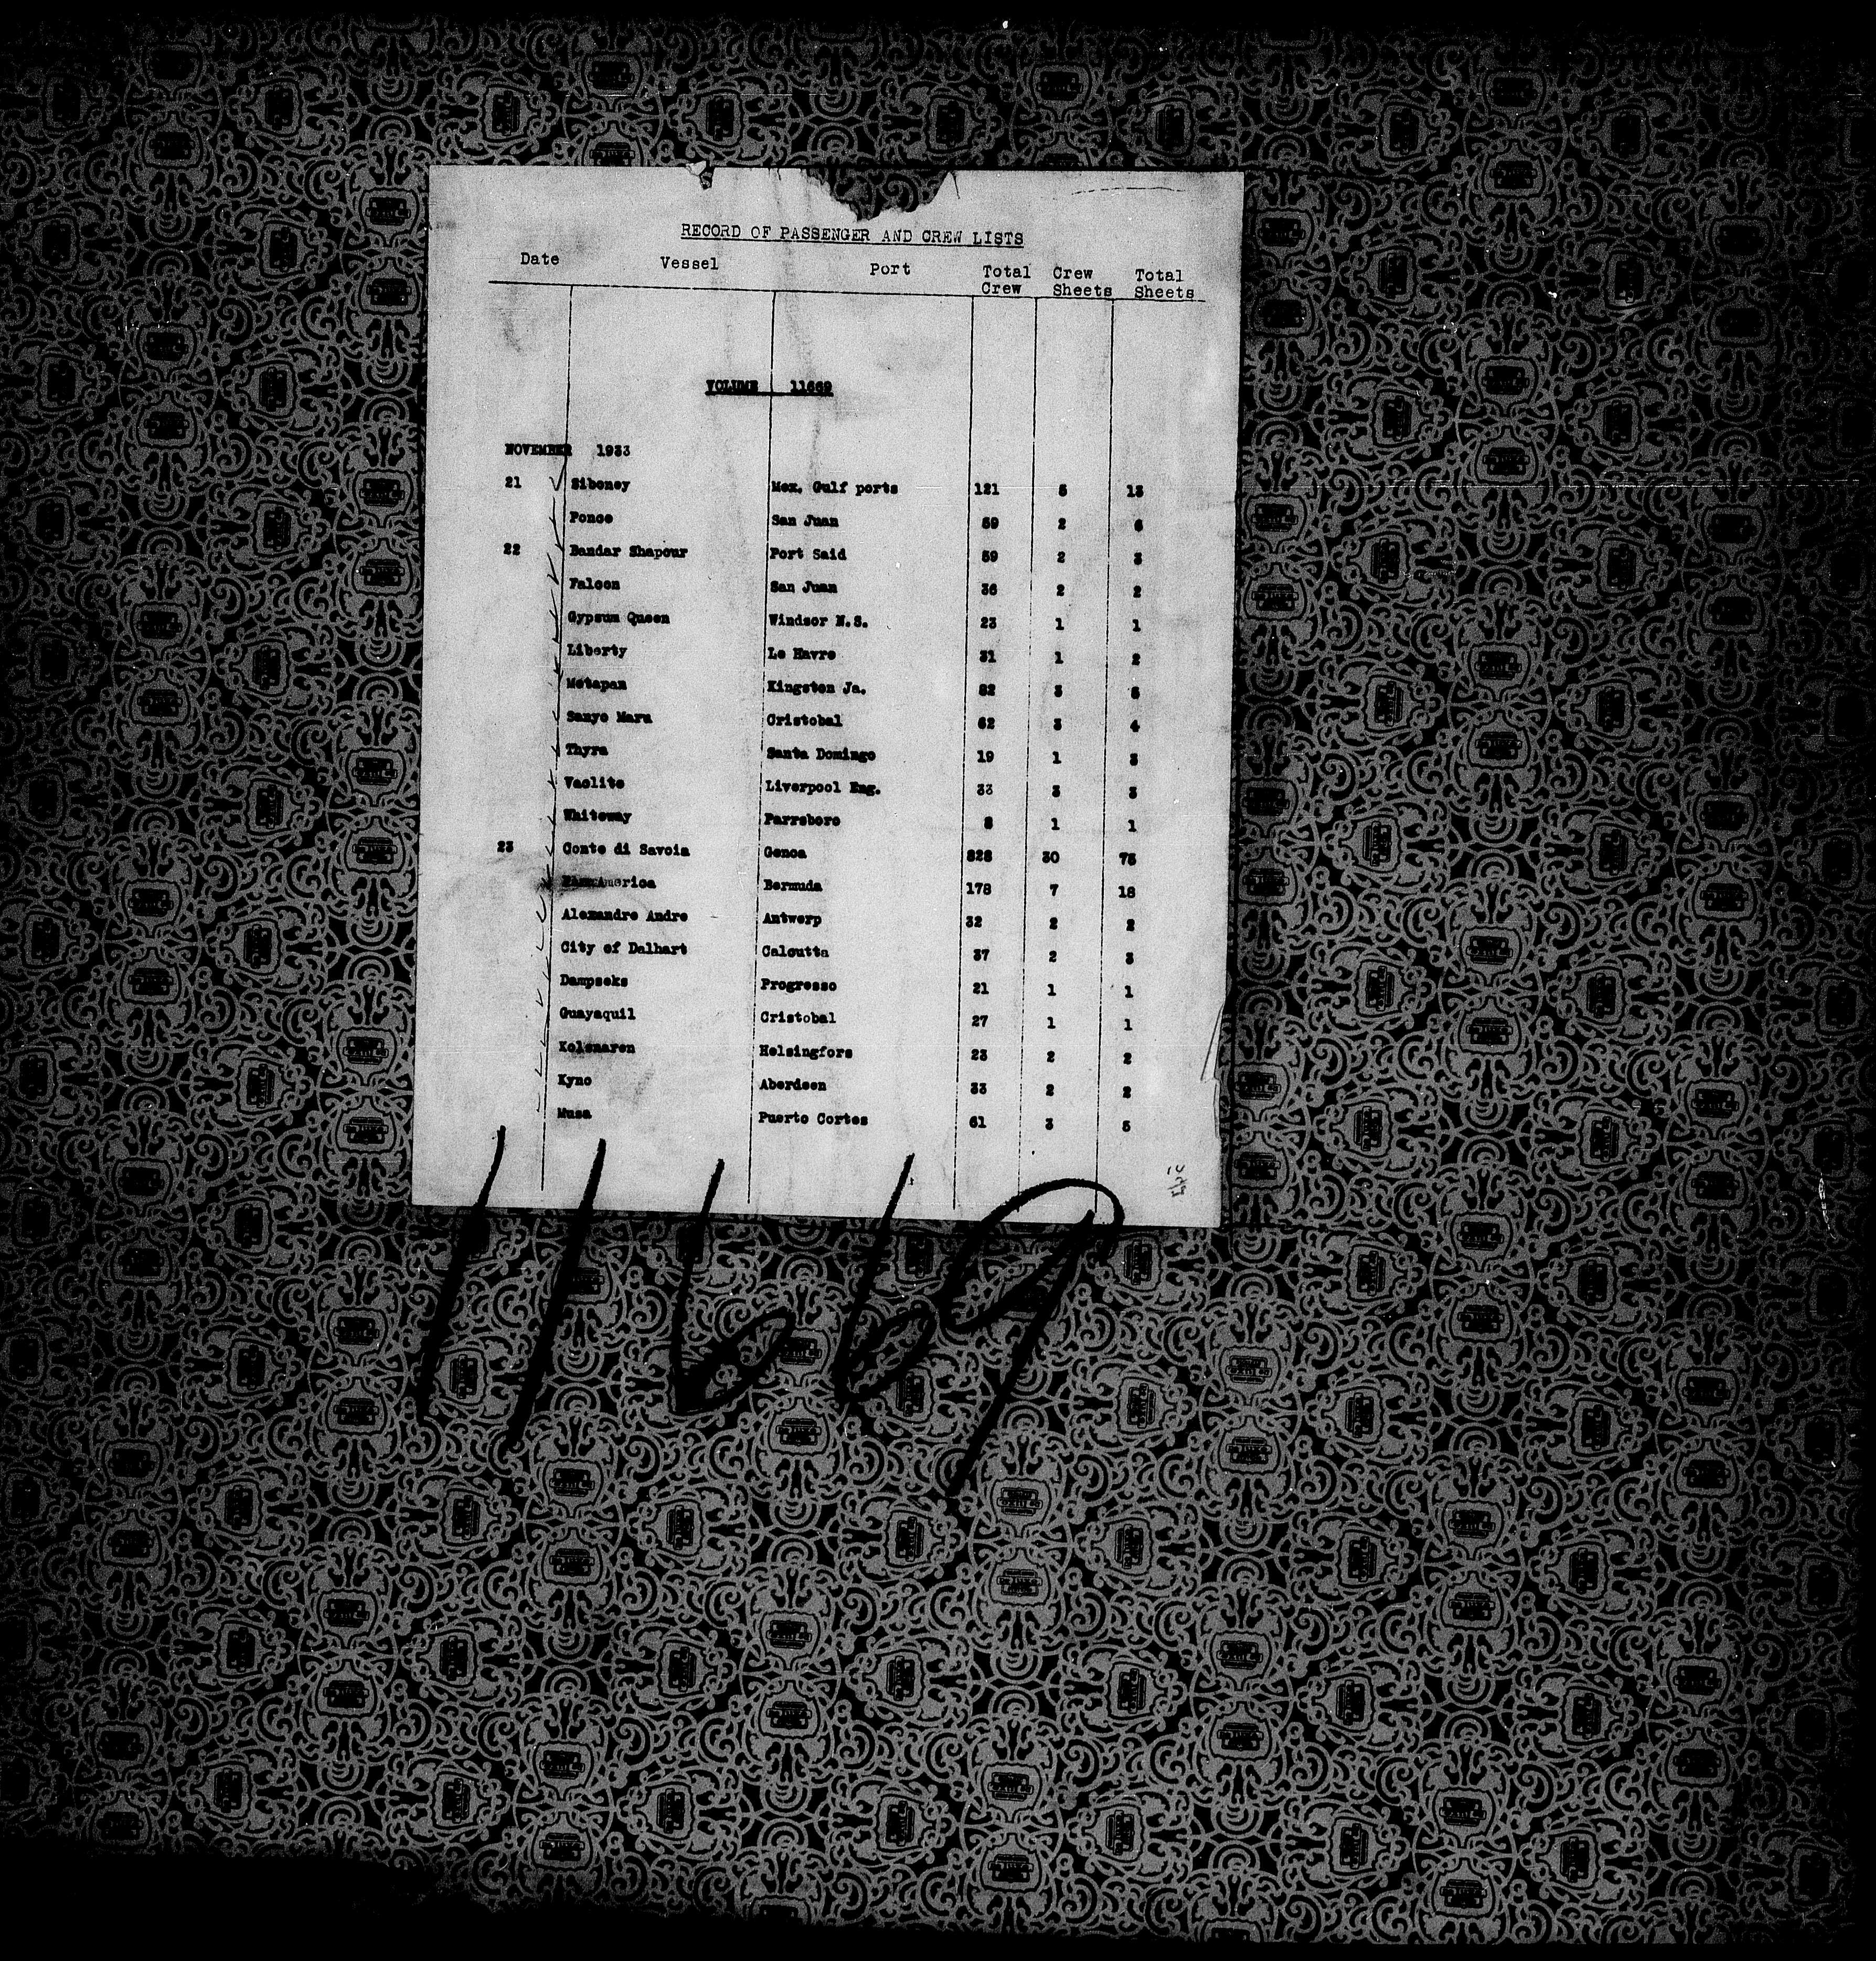 RECORD OF PASSENGER AND CREW LISTS
Date Vessel Port Total Crew Crew Sheets Total Sheets
VOLUME 11669
NOVEMBER 1933
21 Siboney Mex. Gulf ports 121 5 13
Ponce San Juan 59 2 6
22 Bandar Shapour Port Said 59 2 3
Falcon San Juan 36 2 2
Gypsum Queen Windsor N.S. 23 1 1
Liberty Le Havre 31 1 2
Metapan Kingston Ja. 82 3 5
Sanyo Maru Cristobal 62 3 4
Thyra Santa Domingo 19 1 3
Vaclite Liverpool Eng. 33 3 3
Whiteway Parrsboro 8 1 1
23 Conte di Savoia Genoa 828 30 75
America Bermuda 178 7 18
Alexandre Andre Antwerp 32 2 2
City of Dalhart Calcutta 37 2 3
Dampseks Progresso 21 1 1
Guayaquil Cristobal 27 1 1
Kolsnaren Helsingfors 23 2 2
Kyno Aberdeen 33 2 2
Musa Puerto Cortes 61 3 5
11669